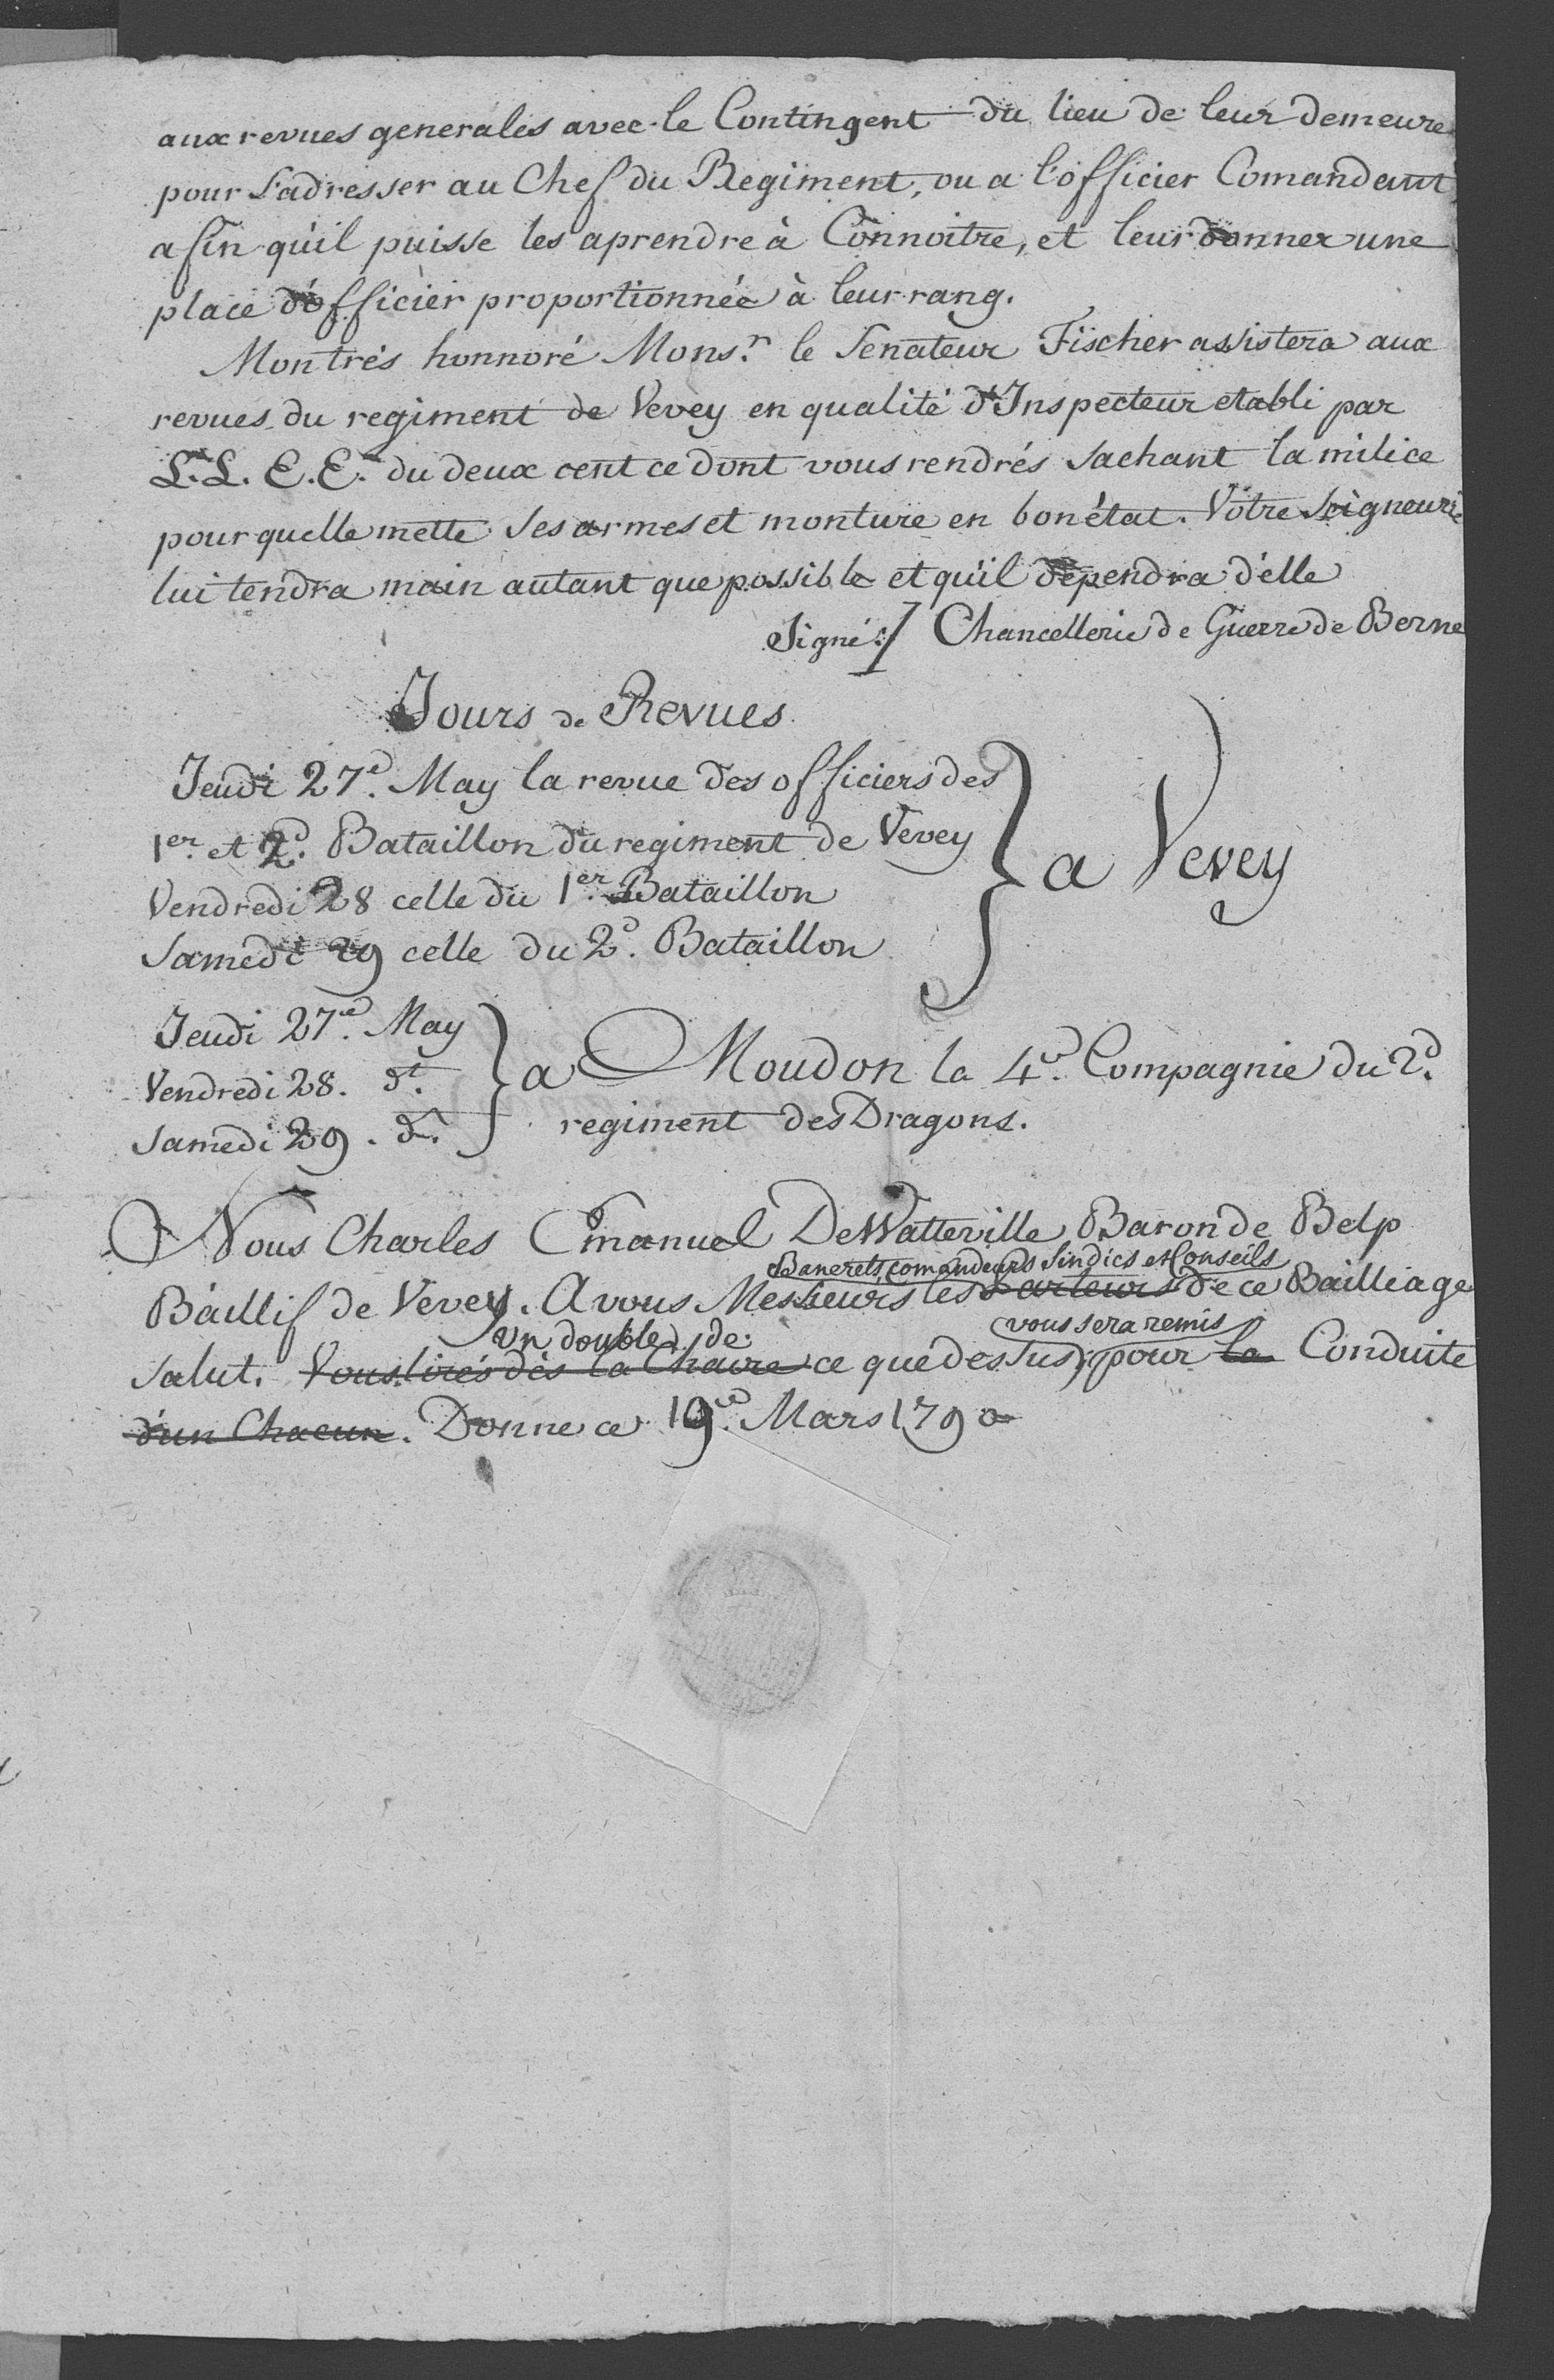 aux revues generales avec le Contingent du lieu de leur demeure
pour s'adresser au Chef du Regiment, ou a l'officier Comandant
afin qu'il puisse les aprendre à Connoitre, et leur donner une
place d'officier proportionnée à leur rang.
Mon trés honnoré Mons.r le Senateur Fischer assistera aux
revues du regiment de Vevey en qualité d'Inspecteur etabli par
L.L. E.E. du deux cent ce dont vous rendrés sachant la milice
pour quelle mette ses armes et monture en bon état. Vôtre Seigneurie
lui tendra main autant que possible et qu'il dependra d'elle
Signé:/ Chancellerie de Guerre de Berne
Jours de Revues
Jeudi 27.e May la revue des officiers des
1.er et 2.d Bataillon du regiment de Vevey
Vendredi 28 celle du 1.er Bataillon
Samedi 29 celle du 2.d Bataillon
} a Vevey
Jeudi 27.e May
Vendredi 28. dt.
Samedi 29. dt.
} a Moudon la 4.e Compagnie du 2.d
regiment des Dragons.
Nous Charles Emanuel DeWatteville, Baron de Belp
Banerets, comandeurs Sindics et Conseils
Baillif de Vevey. A vous Messieurs les Pasteurs de ce Bailliage
un double de vous sera remis
salut. Vous lirés dès la Chaire ce que dessus, pour la Conduite
d'un Chacun. Donne ce 19.e Mars 1790